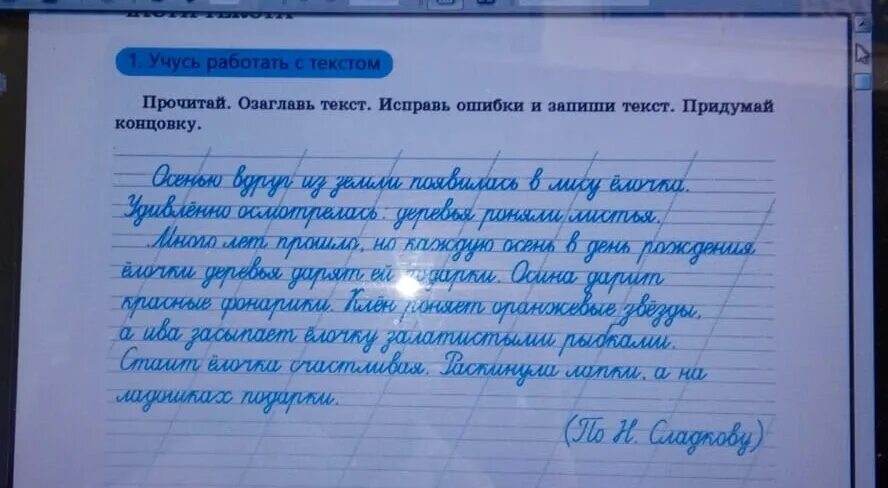 1. Учусь работать с текстом
Прочитай. Озаглавь текст. Исправь ошибки и запиши текст. Придумай
концовку.
Осенью вдруг из земли появилась в лису ёлочка.
Удивлённо осмотрелась: деревья роняли листья.
Много лет прошло, но каждую осень в день рождения
ёлочки деревья дарят ей подарки. Осина дарит
красные фонарики. Клён роняет оранжевые звёзды,
а ива засыпает ёлочку залатистыми рыбками.
Стаит ёлочка счастливая. Раскинула лапки, а на
ладошках подарки.
(По Н. Сладкову)